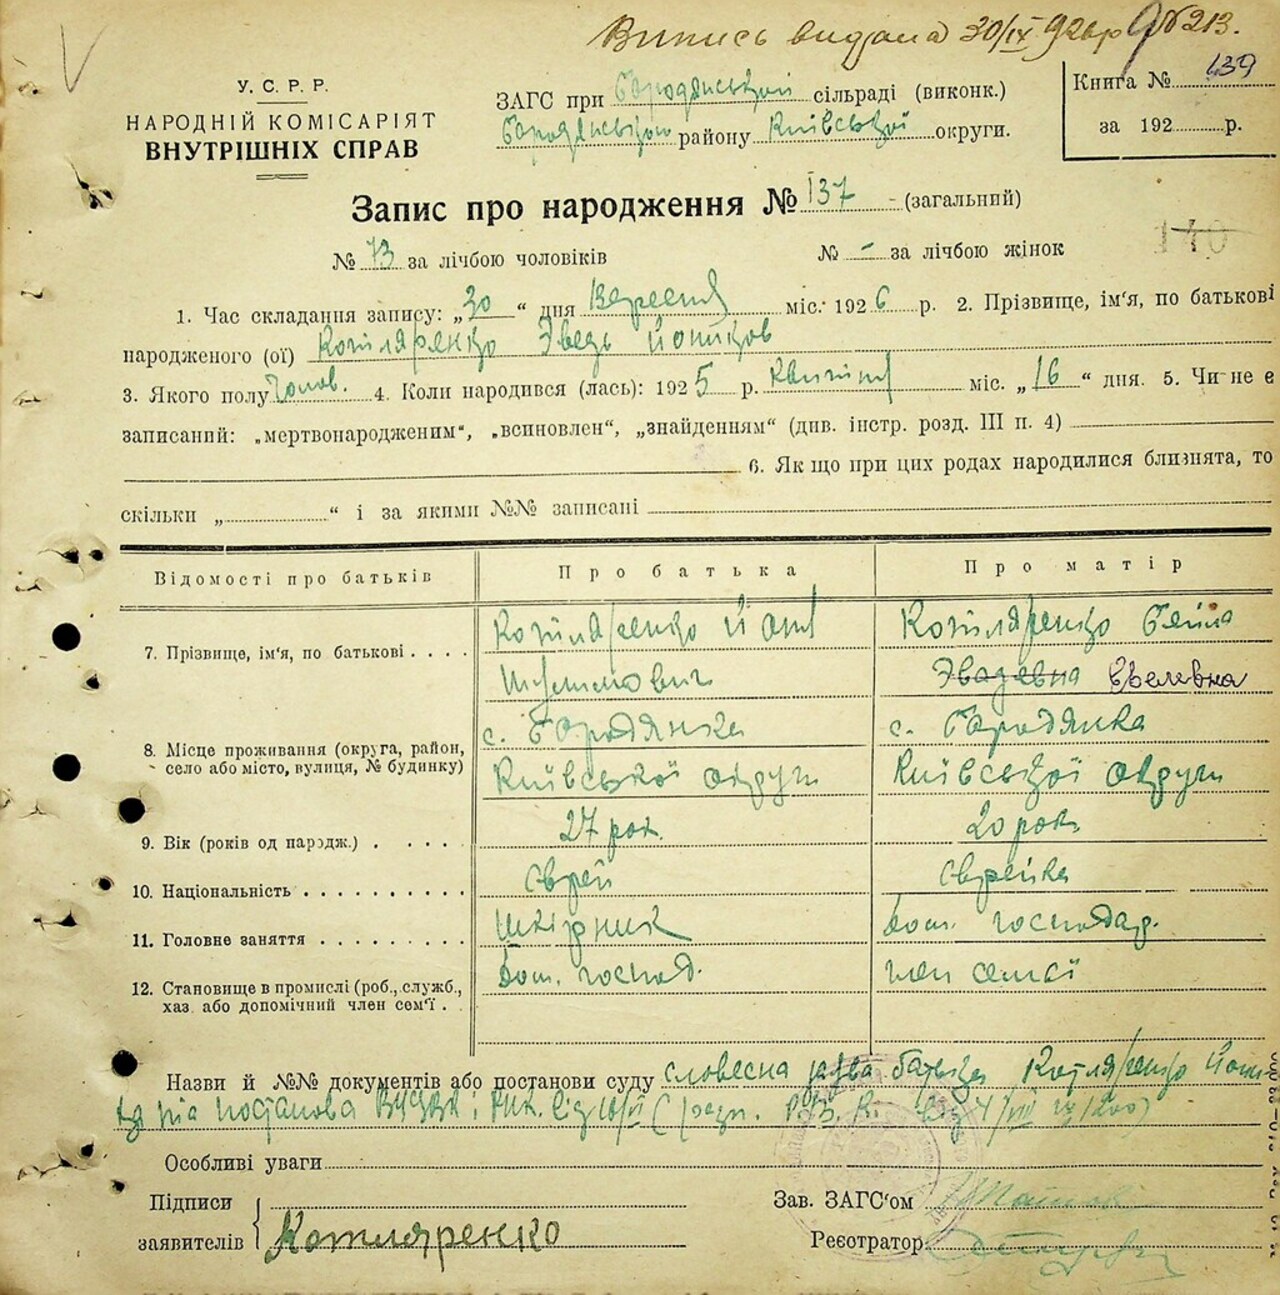 Випись видана 30/IX 926р № 213.
У. С. Р. Р.
НАРОДНІЙ КОМІСАРІЯТ
ВНУТРІШНІХ СПРАВ
ЗАГС при Бородянській сільраді (виконк.)
Бородянського району Київської округи.
Книга № 139
за 192 р.
Запис про народження № 137 - (загальний)
140
№ 73 за лічбою чоловіків № - за лічбою жінок
1. Час складання запису: „30“ дня Вересня міс. 1926 р. 2. Прізвище, ім'я, по батькові
народженого (ої) Котляренко Эведь Йопиков
3. Якого полу Чолов. 4. Коли народився (лась): 1925 р. Квітня міс. „16“ дня. 5. Чи не є
записаний: „мертвонародженим“, „всиновлен“, „знайденням“ (див. інстр. розд. III п. 4)
6. Як що при цих родах народилися близнята, то
скільки „ “ і за якими №№ записані
Відомості про батьків Про батька Про матір
7. Прізвище, ім'я, по батькові . . . .
Котляренко
Шулимович
Котляренко Бейла
Эвадевна Евелевна
8. Місце проживання (округа, район,
село або місто, вулиця, № будинку)
с. Бородянка
Київської округи
с. Бородянка
Київської округи
9. Вік (років од народж.) . . . . . 27 рок. 20 рок.
10. Національність . . . . . . . . . . Єврей Єврейка
11. Головне заняття . . . . . . . . . Шкірник Дом. господар.
12. Становище в промислі (роб., служб.,
хаз. або допомічний член сем'ї . .
Дом. господ. член семьї
Назви й №№ документів або постанови суду словесна заява батька Котляренко
постанова ВУЦВК і РНК. від
Особливі уваги
Підписи
заявителів
Котляренко
Зав. ЗАГС'ом
Реєстратор